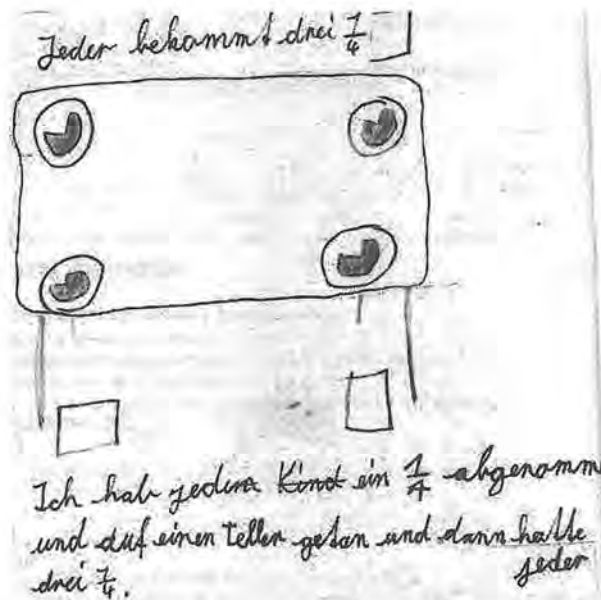 Jeder bekommt drei 1/4
Ich hab jedem Kind ein 1/4 abgenomm
und auf einen Teller getan und dann hatte
jeder
drei 1/4.